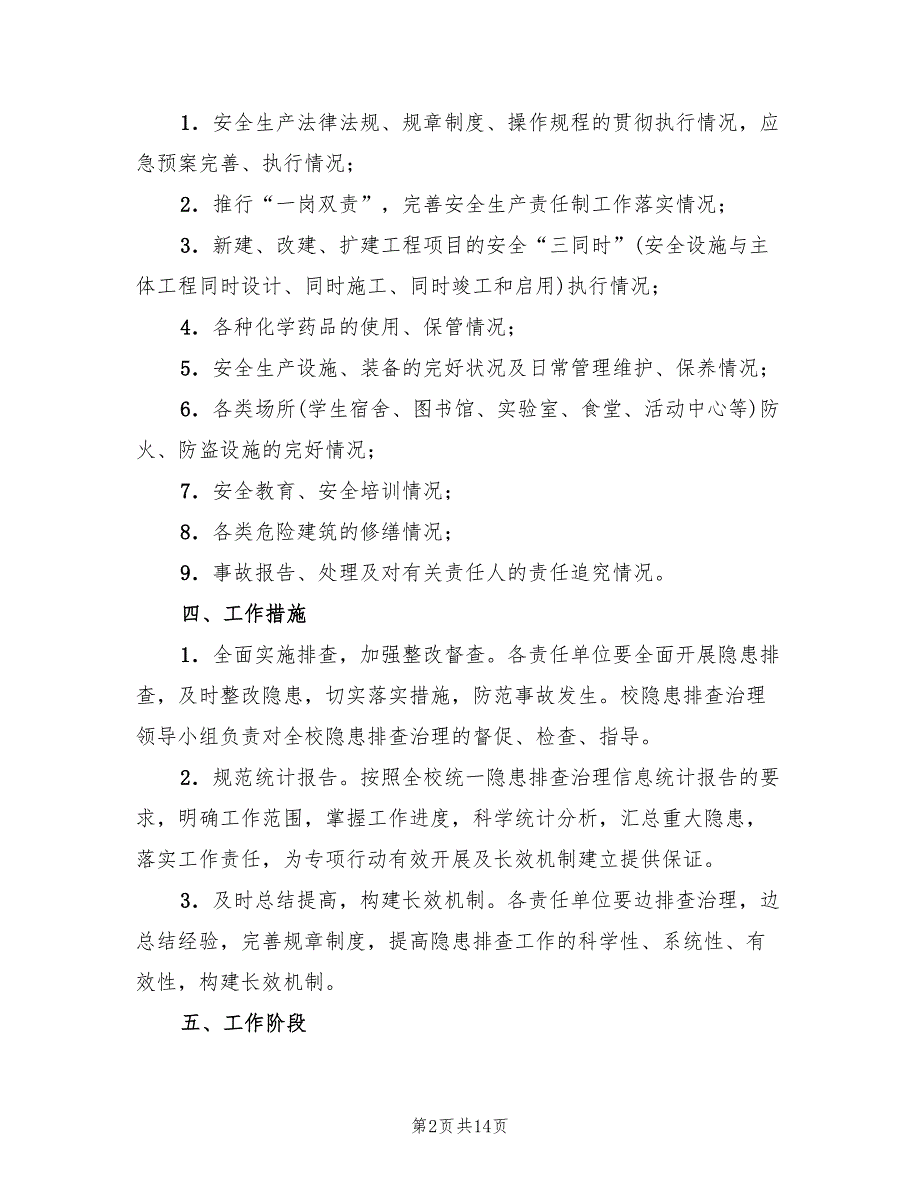 1．安全生产法律法规、规章制度、操作规程的贯彻执行情况，应
急预案完善、执行情况；
2．推行“一岗双责”，完善安全生产责任制工作落实情况；
3．新建、改建、扩建工程项目的安全“三同时”(安全设施与主
体工程同时设计、同时施工、同时竣工和启用)执行情况；
4．各种化学药品的使用、保管情况；
5．安全生产设施、装备的完好状况及日常管理维护、保养情况；
6．各类场所(学生宿舍、图书馆、实验室、食堂、活动中心等)防
火、防盗设施的完好情况；
7．安全教育、安全培训情况；
8．各类危险建筑的修缮情况；
9．事故报告、处理及对有关责任人的责任追究情况。
四、工作措施
1．全面实施排查，加强整改督查。各责任单位要全面开展隐患排
查，及时整改隐患，切实落实措施，防范事故发生。校隐患排查治理
领导小组负责对全校隐患排查治理的督促、检查、指导。
2．规范统计报告。按照全校统一隐患排查治理信息统计报告的要
求，明确工作范围，掌握工作进度，科学统计分析，汇总重大隐患，
落实工作责任，为专项行动有效开展及长效机制建立提供保证。
3．及时总结提高，构建长效机制。各责任单位要边排查治理，边
总结经验，完善规章制度，提高隐患排查工作的科学性、系统性、有
效性，构建长效机制。
五、工作阶段
第2页共14页